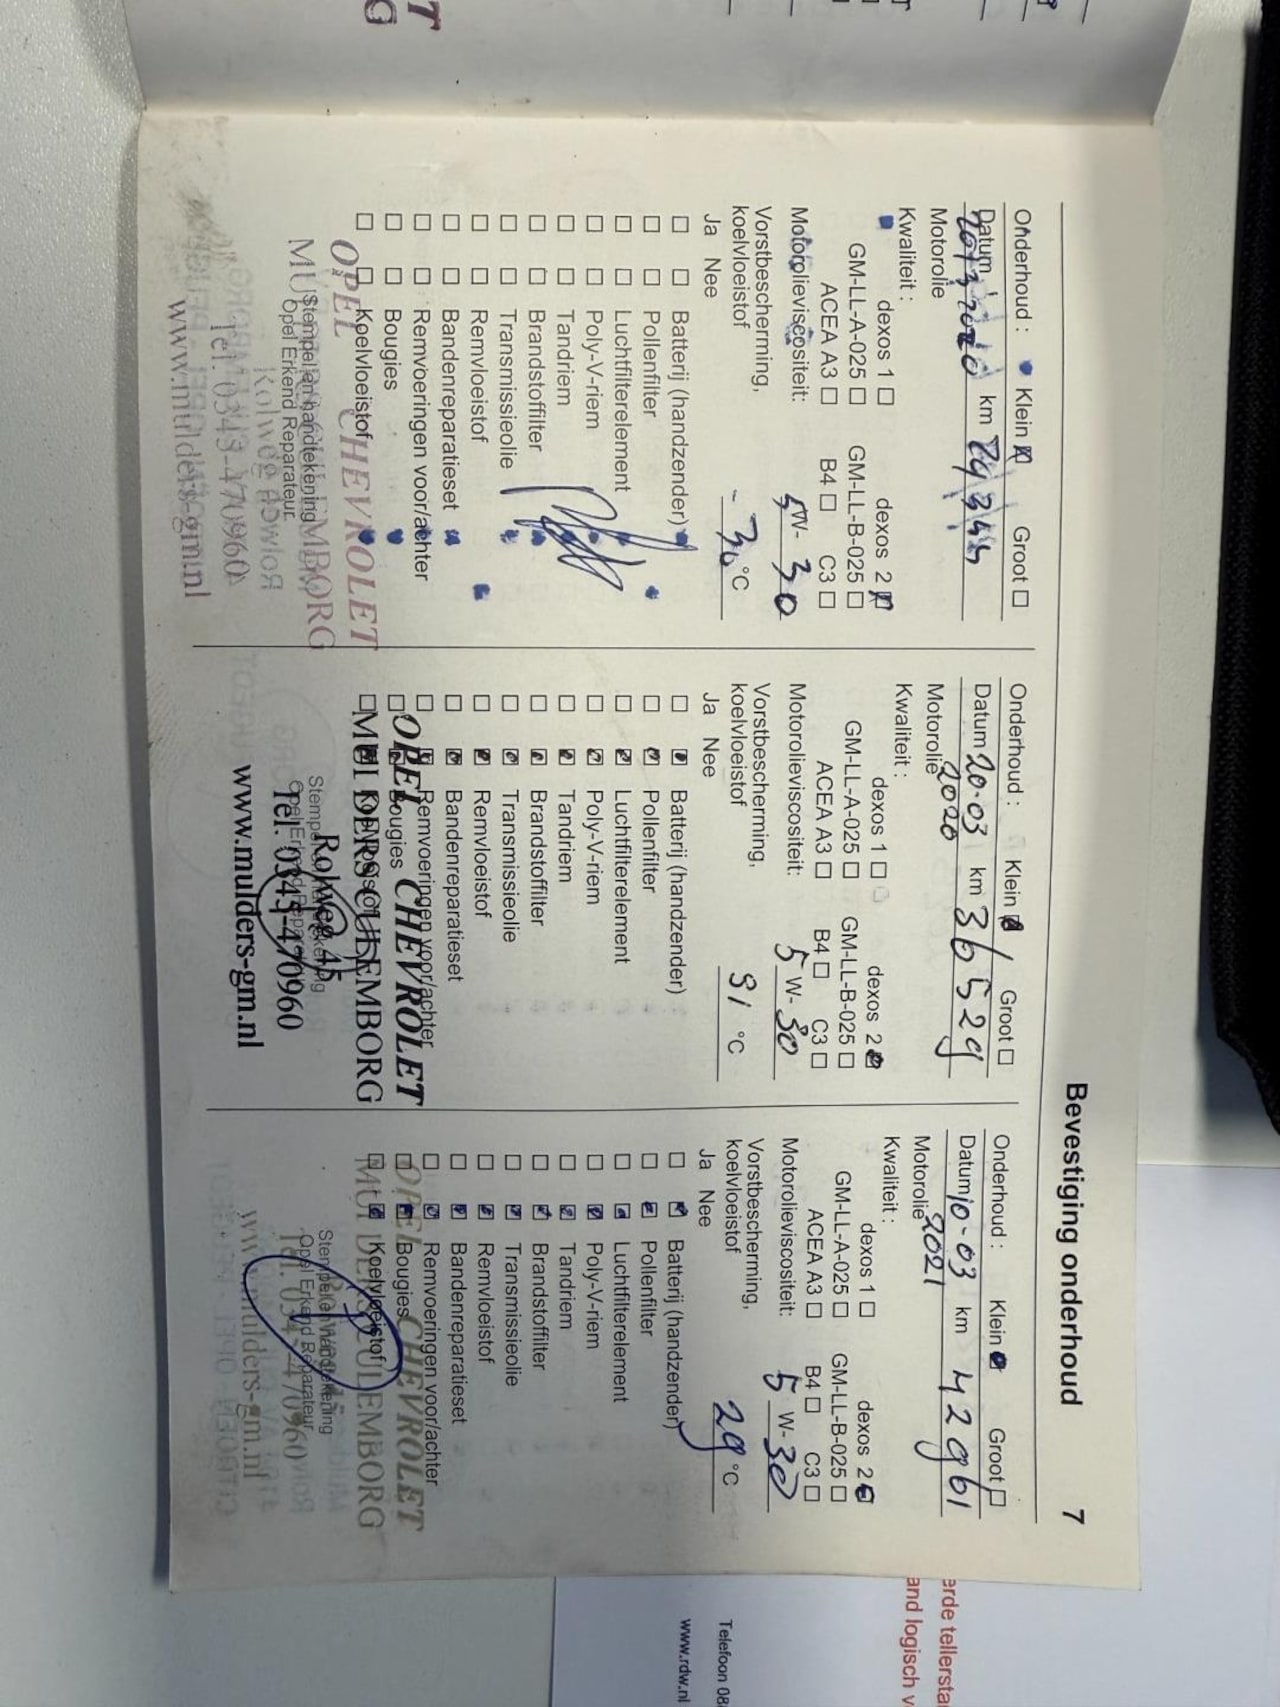 Bevestiging onderhoud 7
Onderhoud : Klein Groot
Datum km
Motorolie
Kwaliteit :
dexos 1 dexos 2
GM-LL-A-025 GM-LL-B-025
ACEA A3 B4 C3
Motorolieviscositeit: 5W-30
Vorstbescherming,
koelvloeistof -30 °C
Ja Nee
Batterij (handzender)
Pollenfilter
Luchtfilterelement
Poly-V-riem
Tandriem
Brandstoffilter
Transmissieolie
Remvloeistof
Bandenreparatieset
Remvoeringen voor/achter
Bougies
Koelvloeistof
OPEL CHEVROLET
Stempel en handtekening
Opel Erkend Reparateur
Tel. 0345-470960
www.mulders-gm.nl
Onderhoud : Klein Groot
Datum 20-03 km 36529
Motorolie 2020
Kwaliteit :
dexos 1 dexos 2
GM-LL-A-025 GM-LL-B-025
ACEA A3 B4 C3
Motorolieviscositeit: 5W-30
Vorstbescherming,
koelvloeistof 31 °C
Ja Nee
Batterij (handzender)
Pollenfilter
Luchtfilterelement
Poly-V-riem
Tandriem
Brandstoffilter
Transmissieolie
Remvloeistof
Bandenreparatieset
Remvoeringen voor/achter
Bougies
OPEL CHEVROLET
MULDERS CULEMBORG
Rolweg 45
Tel. 0345-470960
www.mulders-gm.nl
Onderhoud : Klein Groot
Datum 10-03 km 42961
Motorolie 2021
Kwaliteit :
dexos 1 dexos 2
GM-LL-A-025 GM-LL-B-025
ACEA A3 B4 C3
Motorolieviscositeit: 5W-30
Vorstbescherming,
koelvloeistof 29 °C
Ja Nee
Batterij (handzender)
Pollenfilter
Luchtfilterelement
Poly-V-riem
Tandriem
Brandstoffilter
Transmissieolie
Remvloeistof
Bandenreparatieset
Remvoeringen voor/achter
Bougies
Koelvloeistof
OPEL CHEVROLET
MULDERS CULEMBORG
Stempel en handtekening
Opel Erkend Reparateur
www.mulders-gm.nl
erde tellersta
and logisch v
Telefoon 08
www.rdw.nl